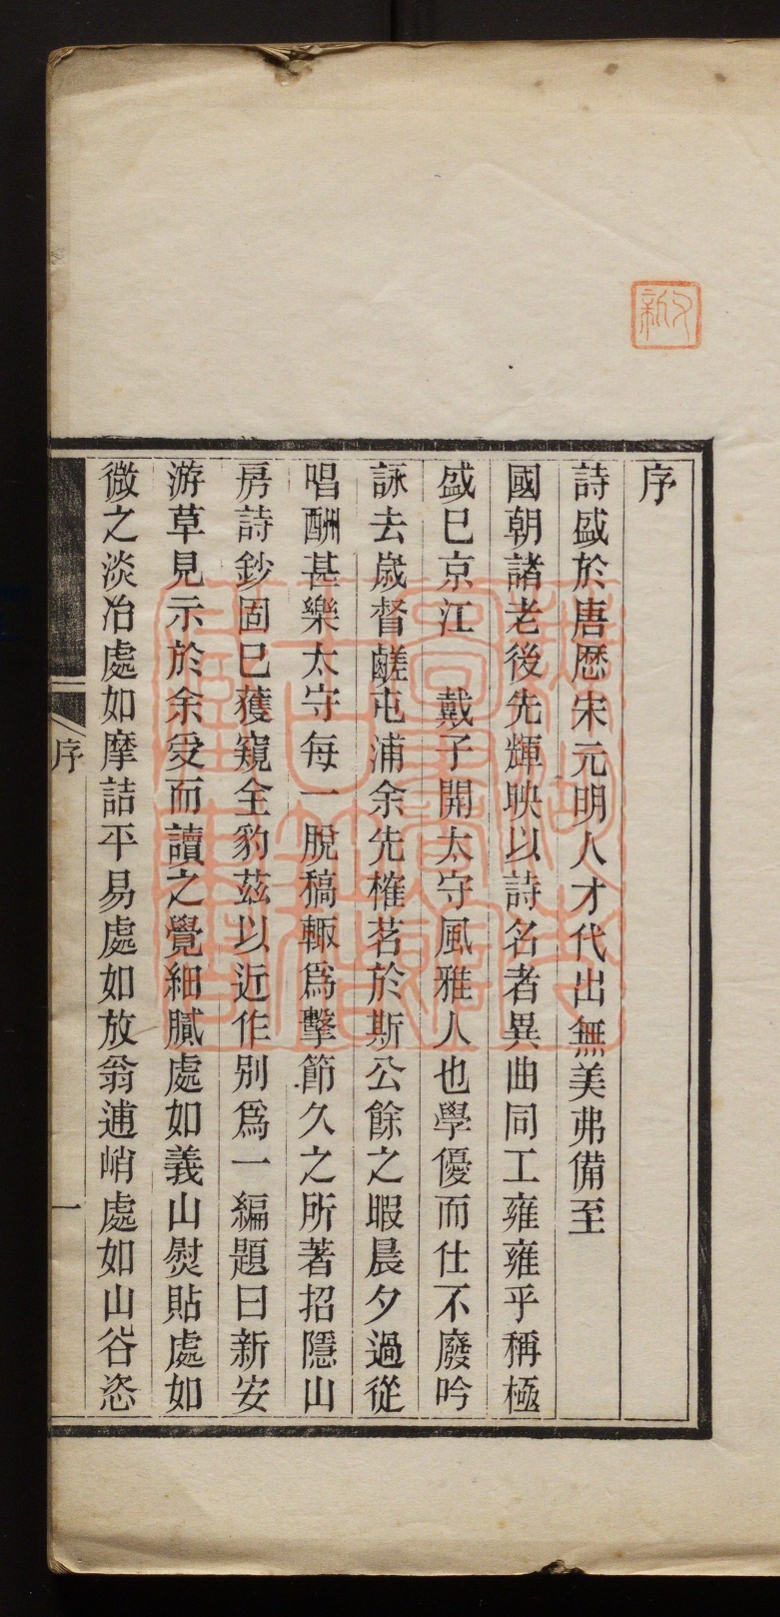 序
詩盛於唐歷宋元明人才代出無美弗備至
國朝諸老後先輝映以詩名者異曲同工雍雍乎稱極
盛已京江　戴子開太守風雅人也學優而仕不廢吟
詠去歲督鹺屯浦余先榷茗於斯公餘之暇晨夕過從
唱酬甚樂太守每一脫稿輒爲擊節久之所著招隱山
房詩鈔固已獲窺全豹茲以近作別爲一編題曰新安
游草見示於余受而讀之覺細膩處如義山熨貼處如
微之淡冶處如摩詰平易處如放翁逋峭處如山谷恣
序
一